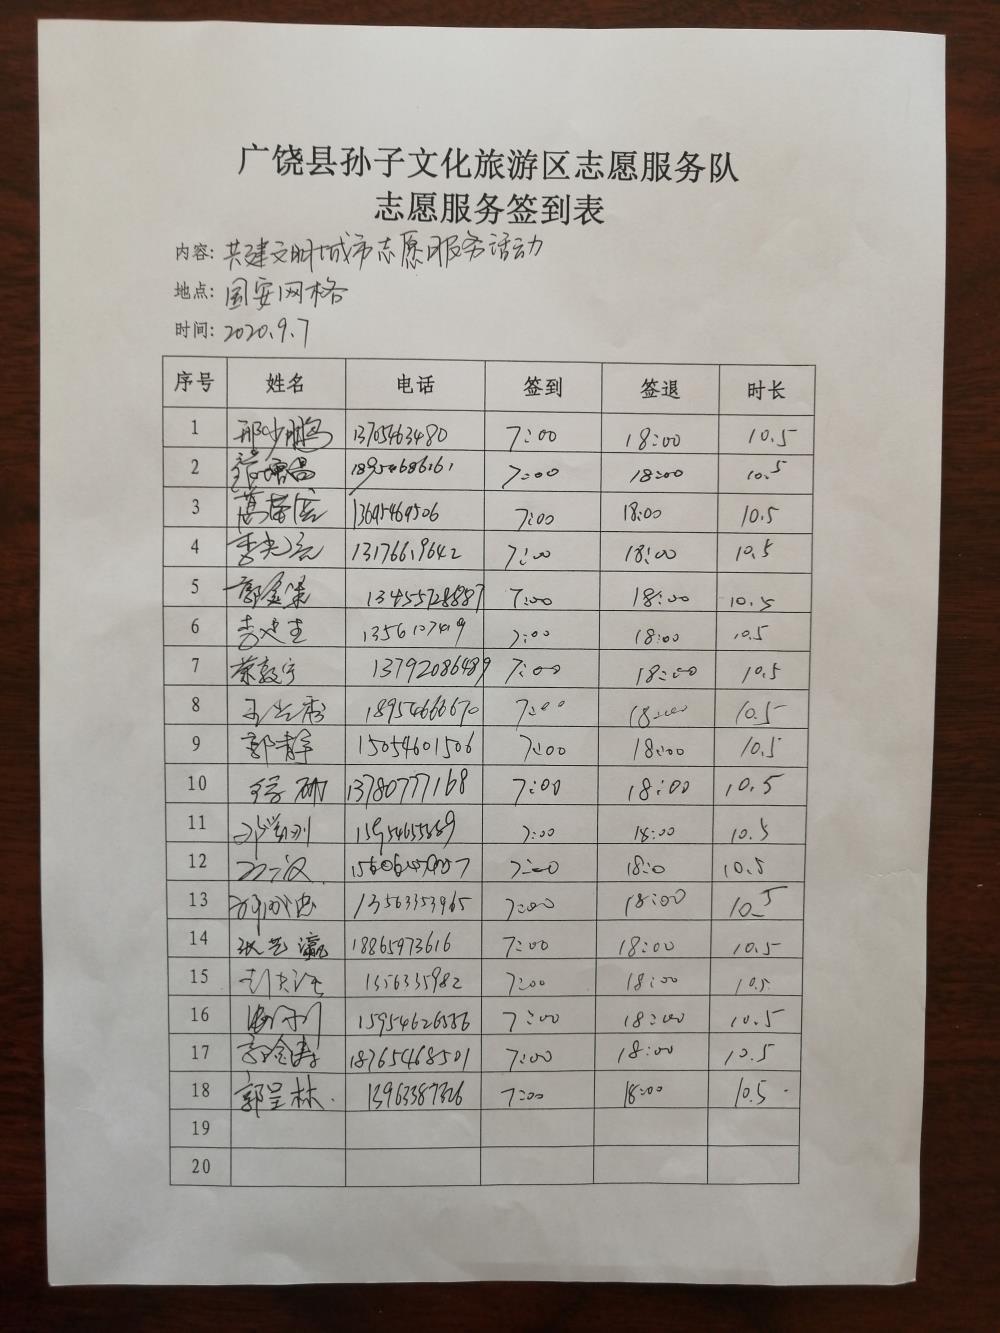 广饶县孙子文化旅游区志愿服务队
志愿服务签到表
内容: 共建文明城市志愿服务活动
地点: 国安网格
时间: 2020.9.7
序号 姓名 电话 签到 签退 时长
1 邢少鹏 13705463480 7:00 18:00 10.5
2 7:00 18:00 10.5
3 13695469506 7:00 18:00 10.5
4 13176619642 7:00 18:00 10.5
5 13455728887 7:00 18:00 10.5
6 7:00 18:00 10.5
7 13792086489 7:00 18:00 10.5
8 18954666670 7:00 18:00 10.5
9 郭静 15054601506 7:00 18:00 10.5
10 13780777168 7:00 18:00 10.5
11 7:00 18:00 10.5
12 7:00 18:0 10.5
13 13563353965 7:00 18:00 10.5
14 18865973616 7:00 18:00 10.5
15 1356335982 7:00 18:00 10.5
16 15954626586 7:00 18:00 10.5
17 18765468501 7:00 18:00 10.5
18 郭呈林 13963387326 7:00 18:00 10.5
19
20